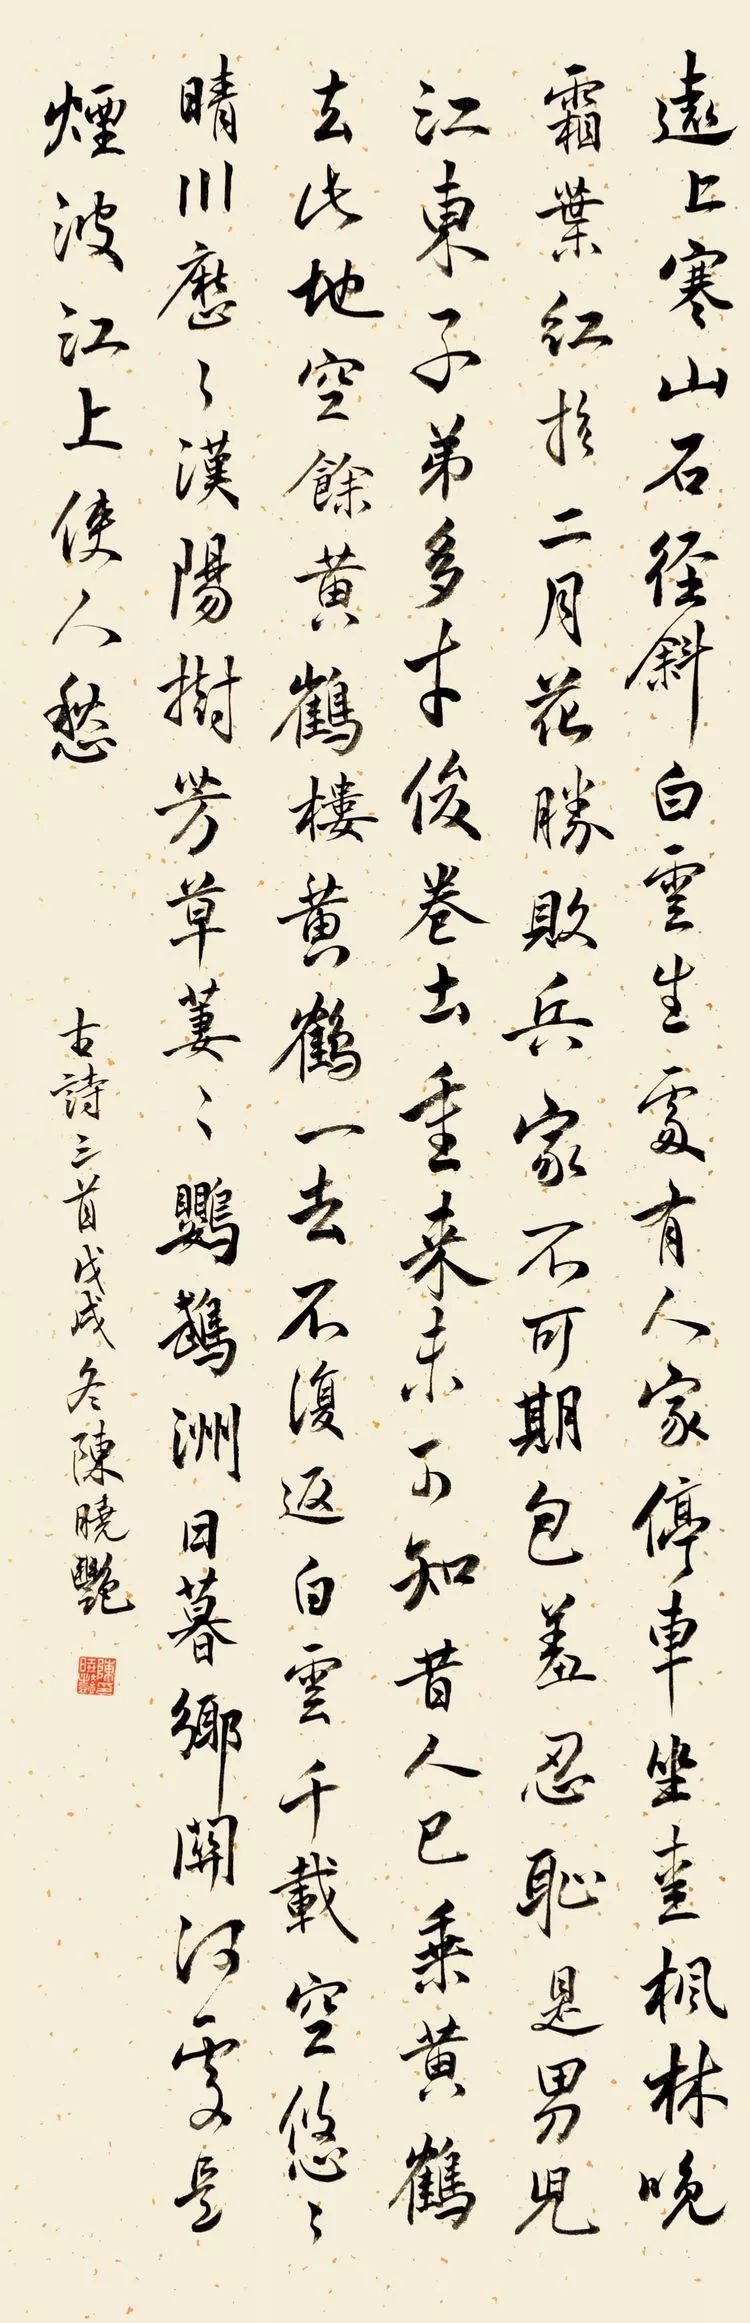 遠上寒山石径斜白雲生處有人家停車坐愛楓林晚
霜葉紅於二月花勝敗兵家不可期包羞忍恥是男兒
江東子弟多才俊卷土重来未可知昔人已乘黄鶴
去此地空餘黄鶴樓黄鶴一去不復返白雲千載空悠〻
晴川歷〻漢陽樹芳草萋〻鸚鵡洲日暮鄉關何處是
煙波江上使人愁
古詩三首戊戌冬陳曉艷